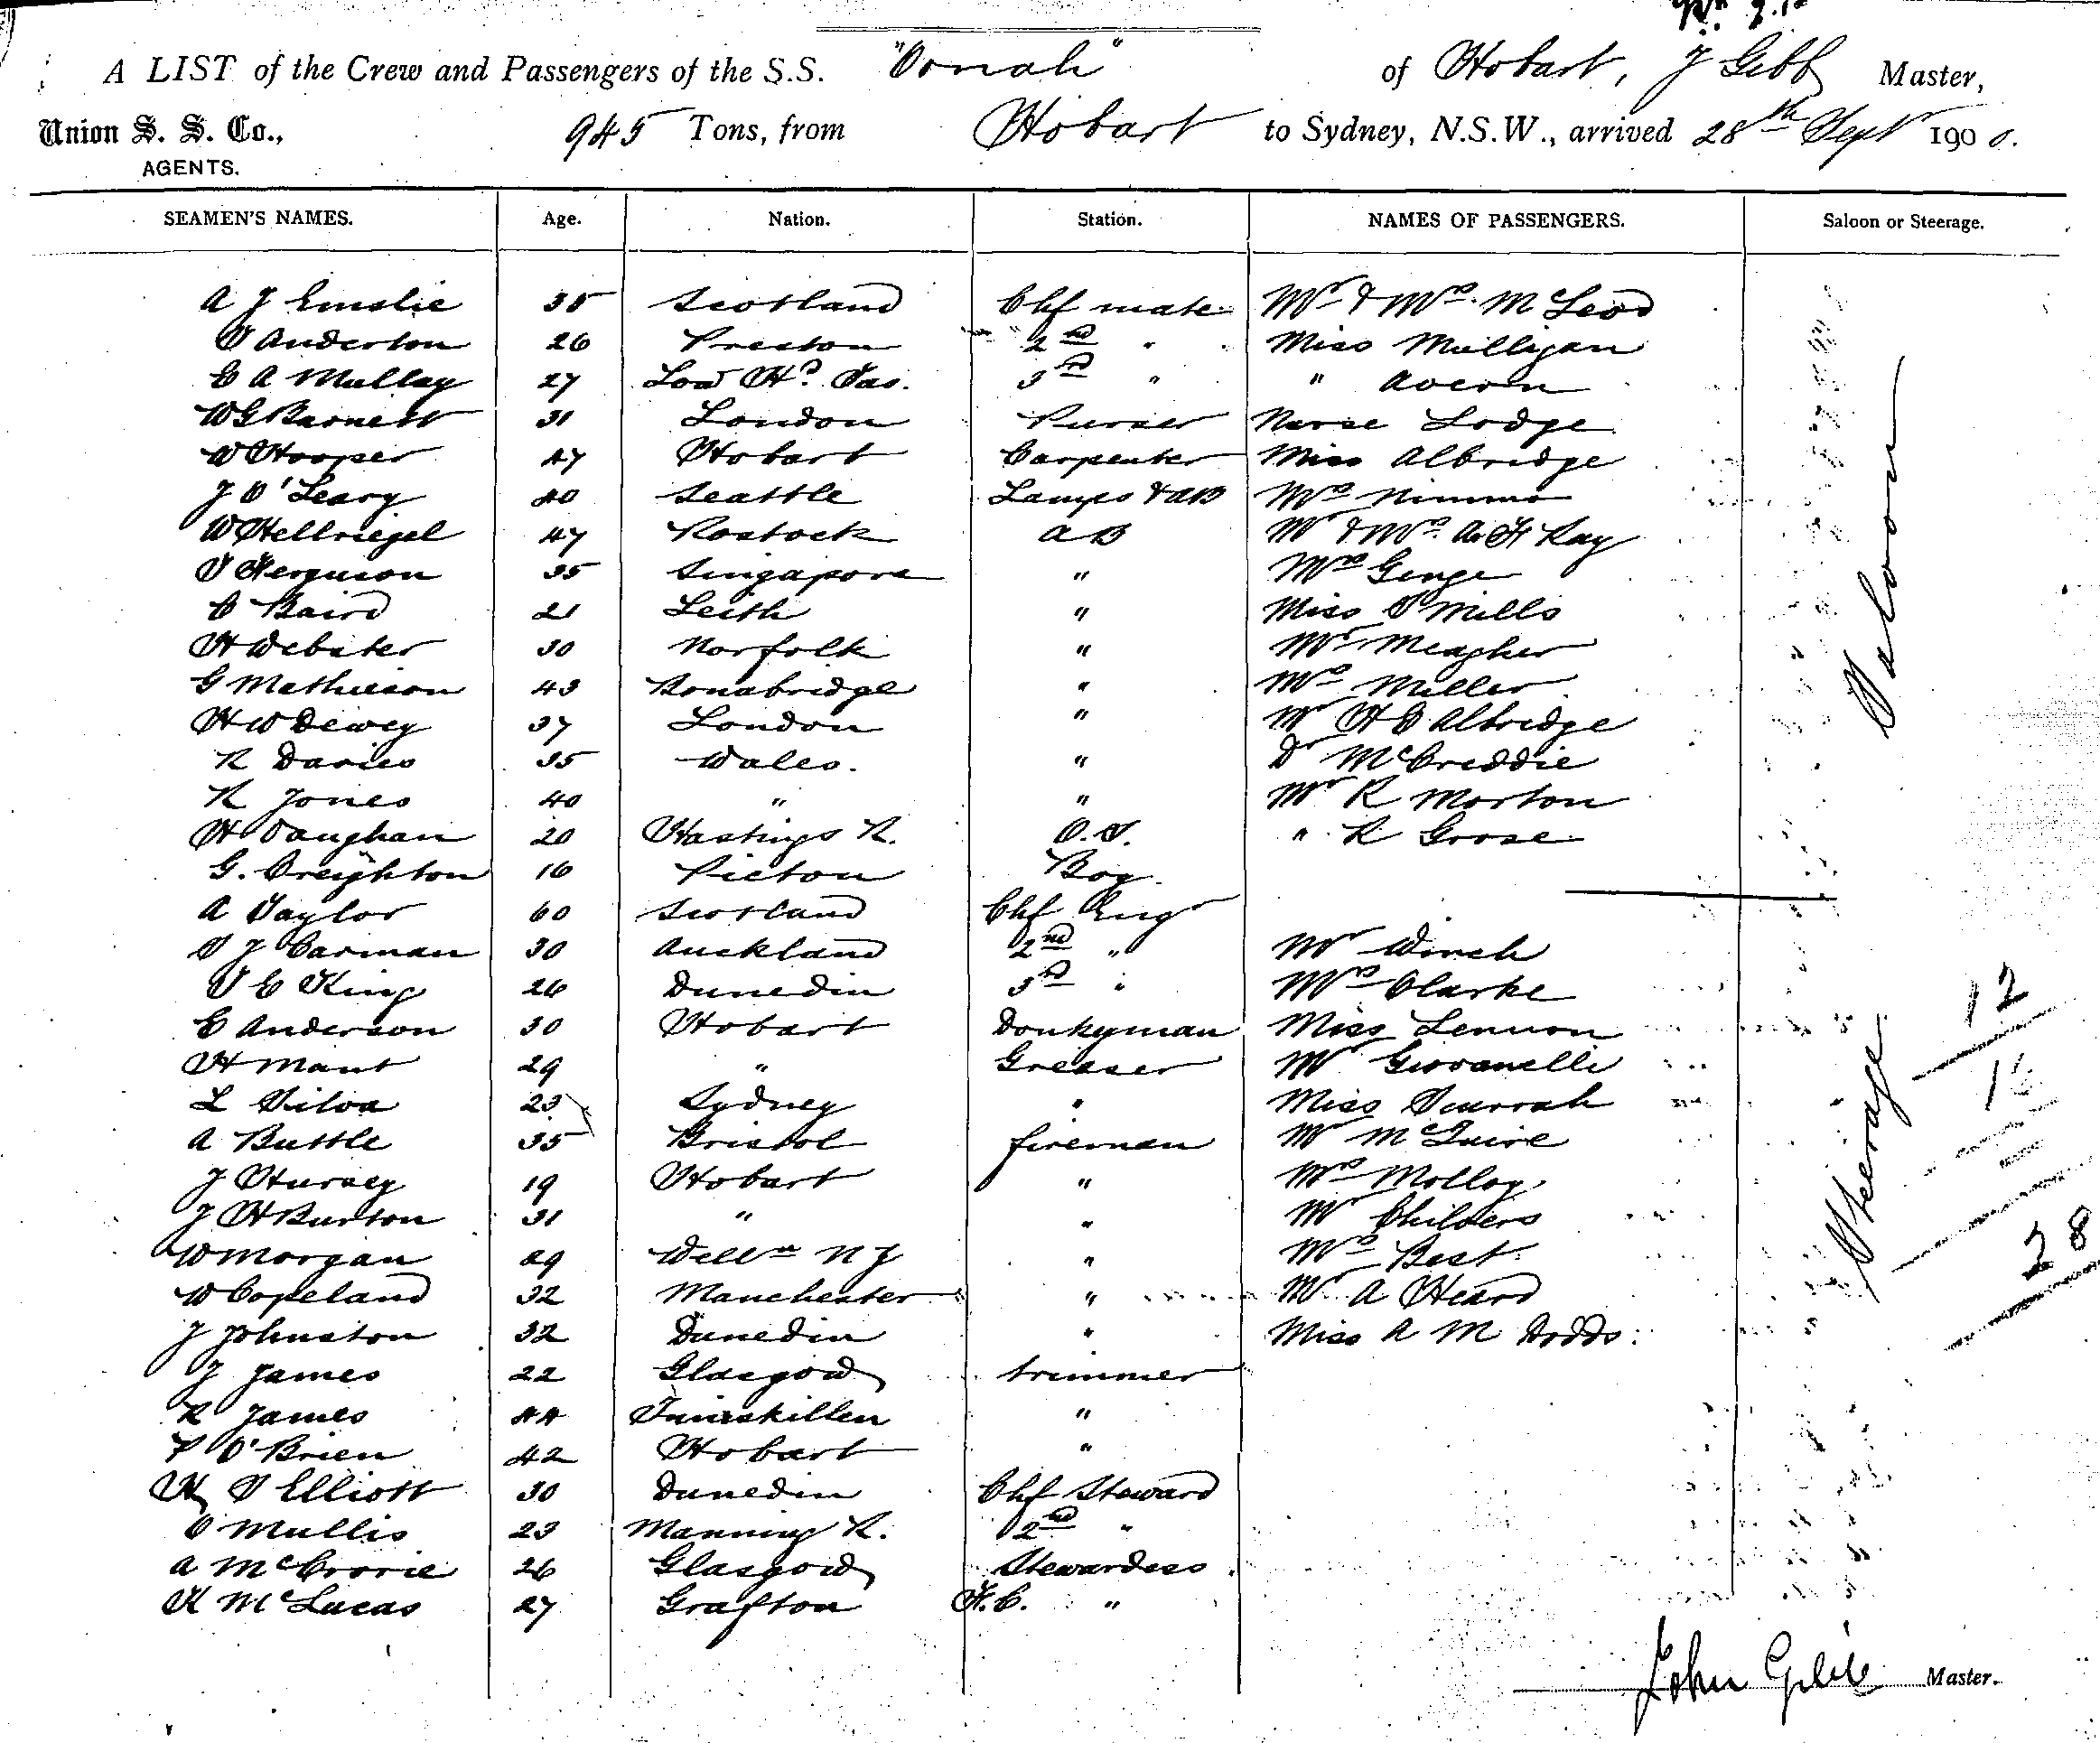 A LIST of the Crew and Passengers of the S.S. "Oonah" of Hobart, J Gibb Master,
Union S. S. Co., 945 Tons, from Hobart to Sydney, N.S.W., arrived 28th Sept 1900.
AGENTS.
SEAMEN'S NAMES. Age. Nation. Station. NAMES OF PASSENGERS. Saloon or Steerage.
A J Emslie 35 Scotland Chf mate Mr & Mrs McLeod
T Anderton 26 Preston 2nd " Miss Mulligan
C A Mullay 27 Low Hd. Tas. 3rd " " Avern
W G Barnett 31 London Purser Nurse Lodge
W Hooper 47 Hobart Carpenter Miss Albridge
J O'Leary 40 Seattle Lamps & AB Mrs Nimmo
W Hellriegel 47 Rostock AB Mr & Mrs A H Kay
T Ferguson 35 Singapore " Mrs Genge
C Baird 21 Leith " Miss T Mills
H Webster 30 Norfolk " Mr Meagher
G Mathieson 43 Bonabridge " Mrs Miller
H W Dewey 37 London " Mr H C Albridge
R Davies 35 Wales. " Dr McCreddie
R Jones 40 " " Mr R Morton
H Vaughan 20 Hastings R. O.S. " R Goose
Saloon
G. Creighton 16 Picton Boy
A Taylor 60 Scotland Chf Engr
T J Carman 30 Auckland 2nd " Mr Winch
T C King 26 Dunedin 3rd " Mrs Clarke
C Anderson 30 Hobart Donkyman Miss Lennon
H Mant 29 " Greaser Mr Giovanelli
L Silva 23 Sydney " Miss Scurrah
A Buttle 35 Bristol fireman Mr McGuire
J Hursey 19 Hobart " Mrs Molloy
J H Burton 31 " " Mr Childers
W Morgan 29 Welln NZ " Mrs Best
W Copeland 32 Manchester " Mr A Heard
J Johnston 32 Dunedin " Miss A M Dodds
Steerage
12
28
J James 22 Glasgow trimmer
R James 44 Inniskillen "
P O'Brien 42 Hobart "
H T Elliott 30 Dunedin Chf Steward
C Mullis 23 Manning R. 2nd "
A McCrorie 26 Glasgow Stewardess
K McLucas 27 Grafton F.C. "
John Gibb Master.